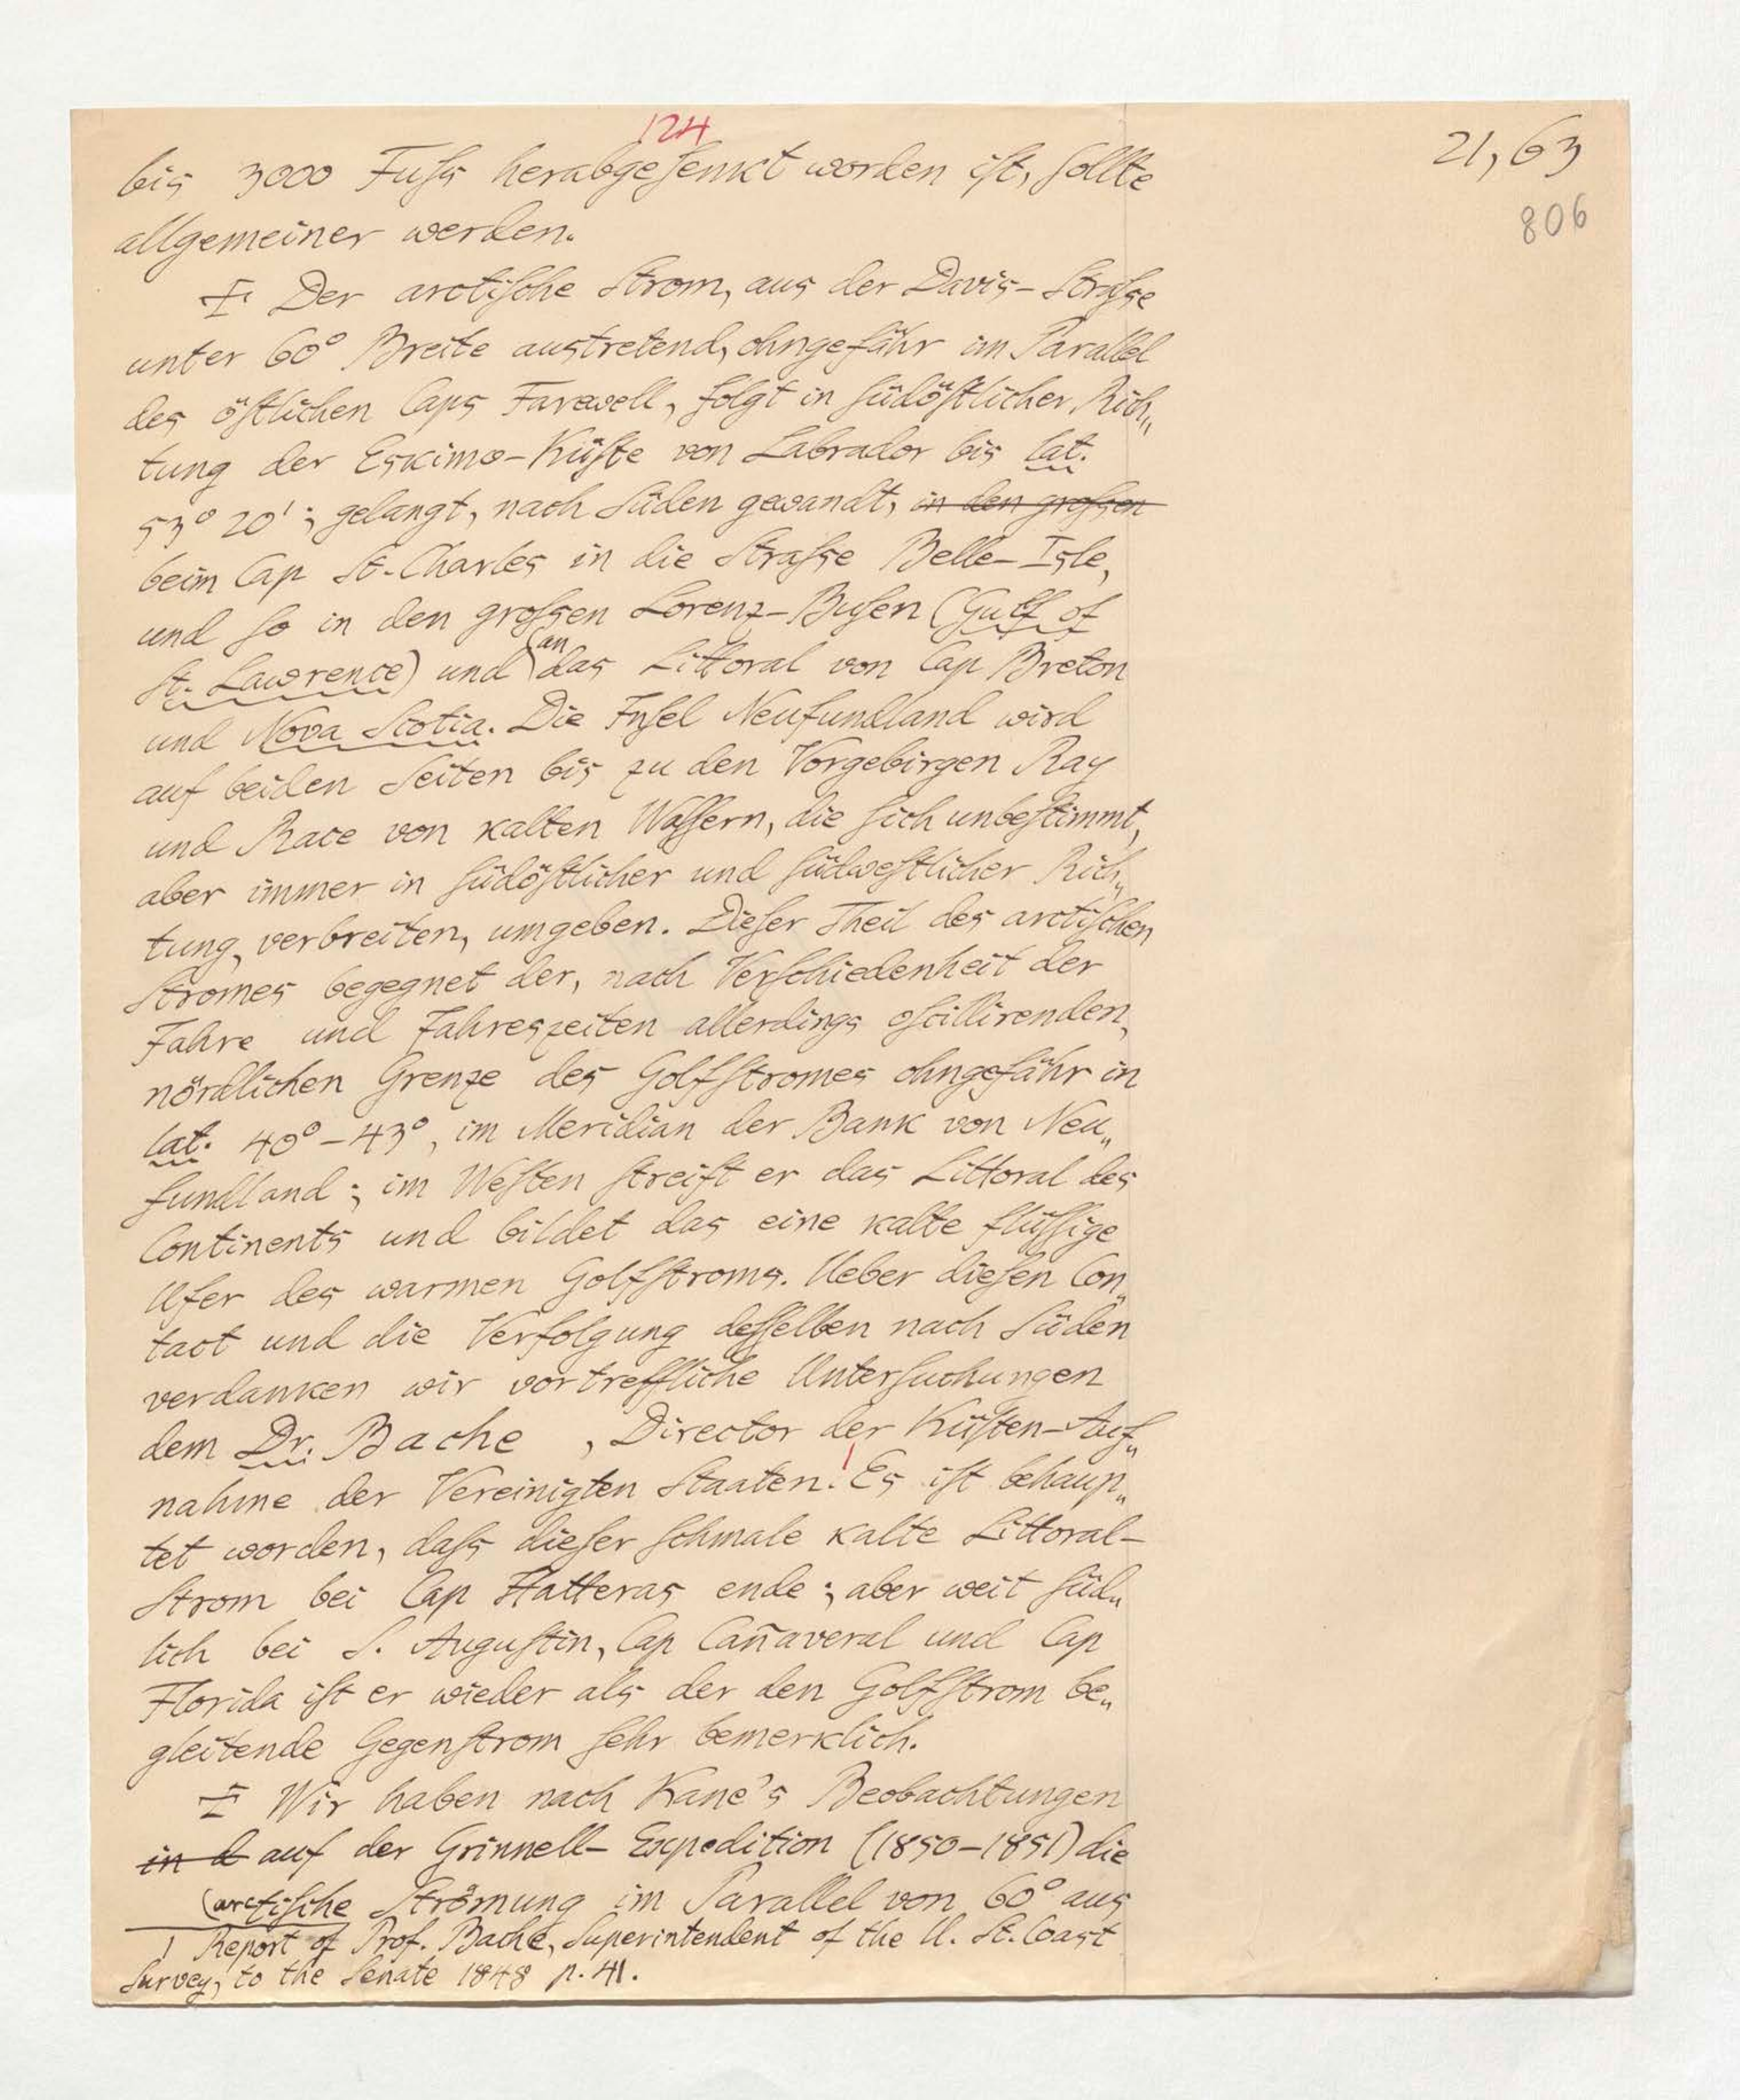 124
21,63
806
bis 3000 Fuſs herabgeſenkt worden iſt, ſollte
allgemeiner werden.
Der arctiſche Strom, aus der Davis-Straſse
unter 60° Breite austretend, ohngefähr im Parallel
des öſtlichen Caps Farewell, folgt in ſüdöſtlicher Rich„
tung der Eskimo-Küſte von Labrador bis lat.
53° 20'; gelangt, nach Süden gewandt, in den groſsen
beim Cap St. Charles in die Straſse Belle-Isle,
und ſo in den groſsen Lorenz-Buſen (Gulf of
St. Lawrence) und (an das Littoral von Cap Breton
und Nova Scotia. Die Inſel Neufundland wird
auf beiden Seiten bis zu den Vorgebirgen Ray
und Race von kalten Waſſern, die ſich unbeſtimmt,
aber immer in ſüdöſtlicher und ſüdweſtlicher Rich„
tung, verbreiten, umgeben. Dieſer Theil des arctiſchen
Stromes begegnet der, nach Verſchiedenheit der
Jahre und Jahreszeiten allerdings oſcillirenden,
nördlichen Grenze des Golfſtromes ohngefähr in
lat. 40°-43°, im Meridian der Bank von Neu„
fundland; im Weſten ſtreift er das Littoral des
Continents und bildet das eine kalte flüſſige
Ufer des warmen Golfſtroms. Ueber dieſen Con„
tact und die Verfolgung deſſelben nach Süden
verdanken wir vortreffliche Unterſuchungen
dem Dr. Bache , Director der Küſten-Auf„
nahme der Vereinigten Staaten.¹ Es iſt behaup„
tet worden, daſs dieſer ſchmale kalte Littoral-
Strom bei Cap Hatteras ende; aber weit ſüd„
lich bei S. Auguſtin, Cap Cañaveral und Cap
Florida iſt er wieder als der den Golfſtrom be„
gleitende Gegenſtrom ſehr bemerklich.
Wir haben nach Kane's Beobachtungen
in d auf der Grinnell-Expedition (1850-1851) die
(arctiſche Strömung im Parallel von 60° aus
1 Report of Prof. Bache, Superintendent of the U. St. Coast
Survey, to the Senate 1848 p. 41.